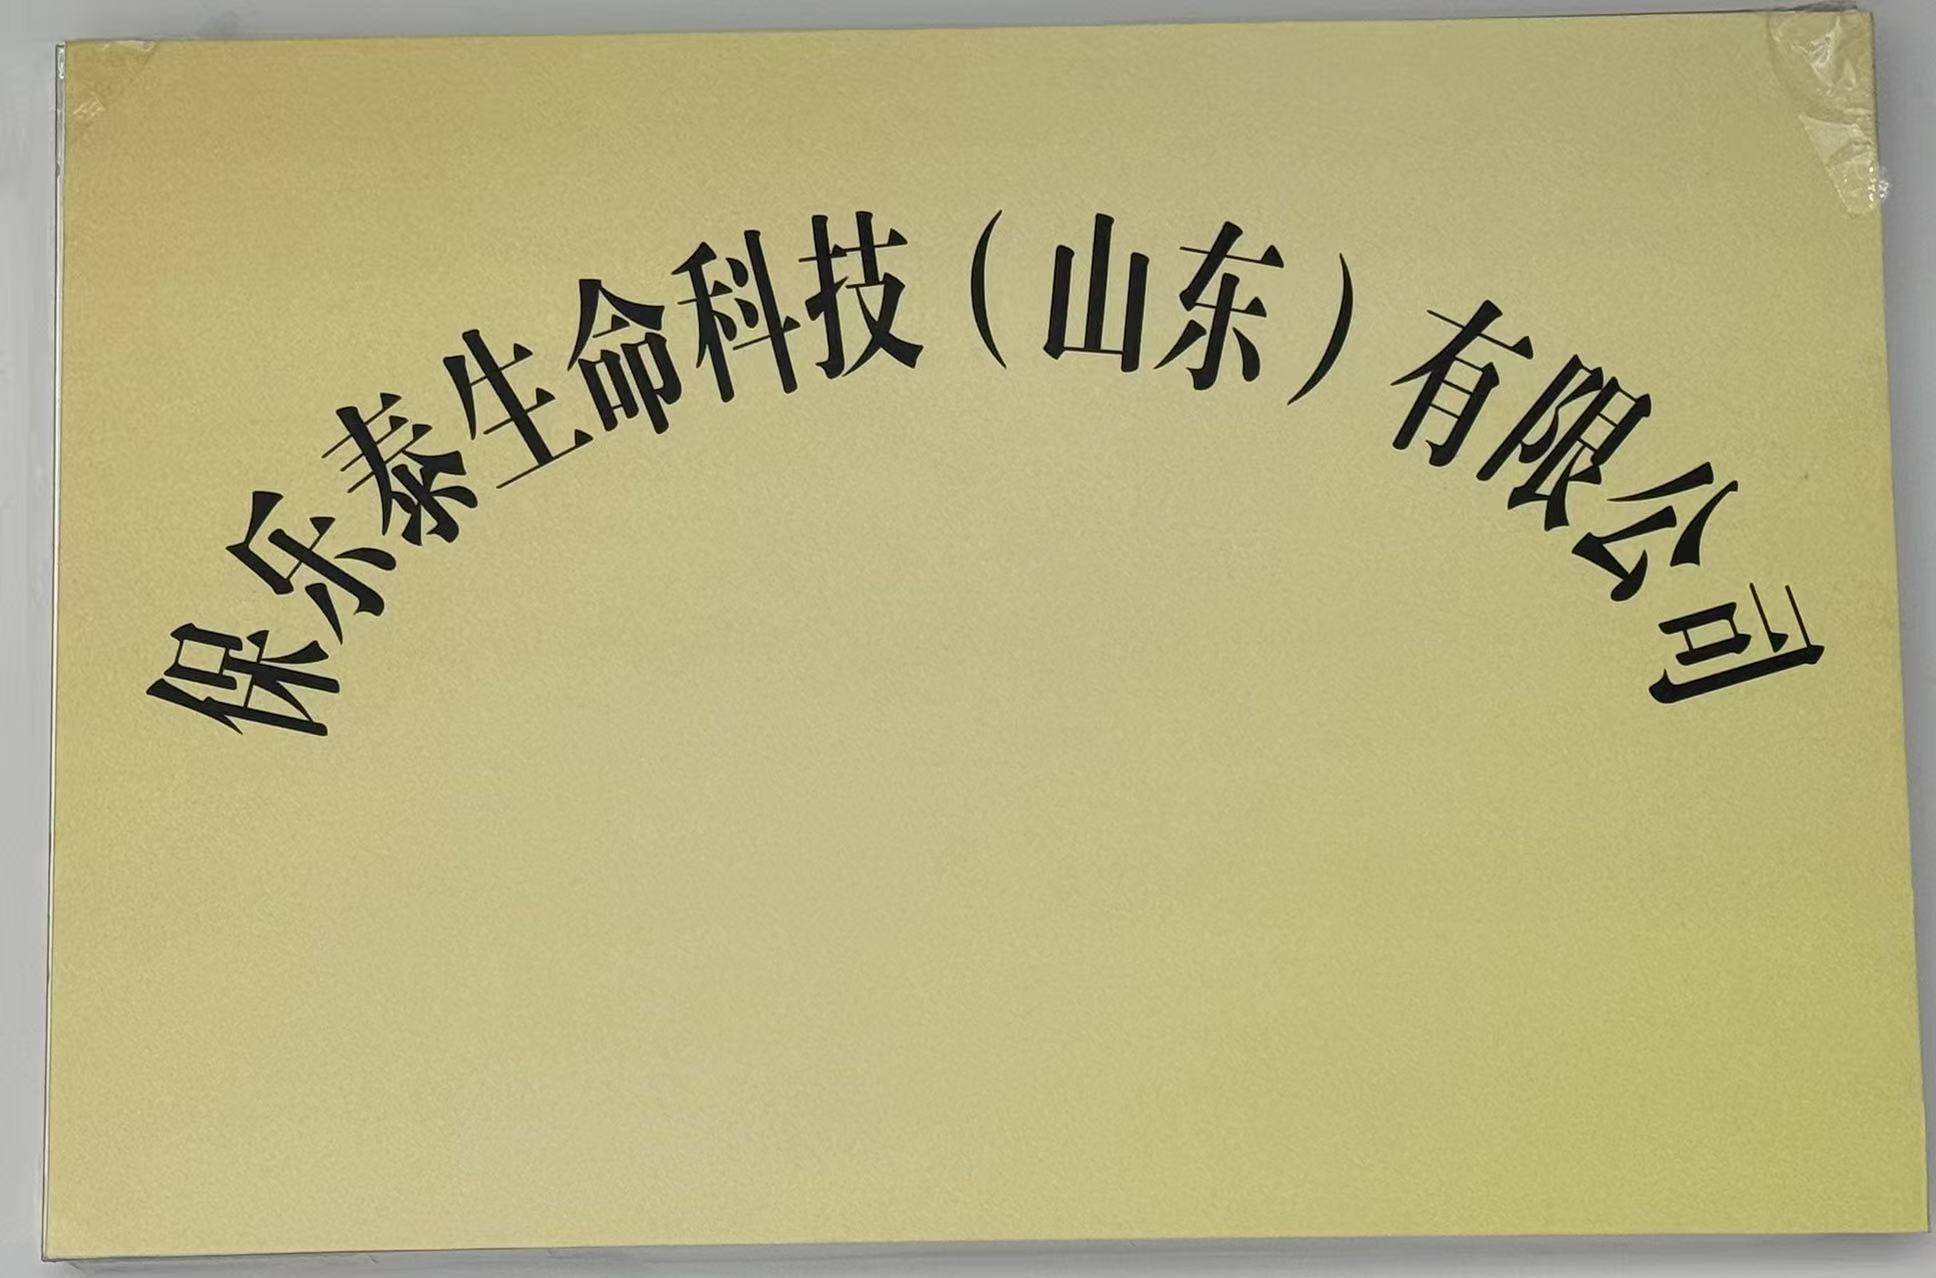 保乐泰生命科技（山东）有限公司